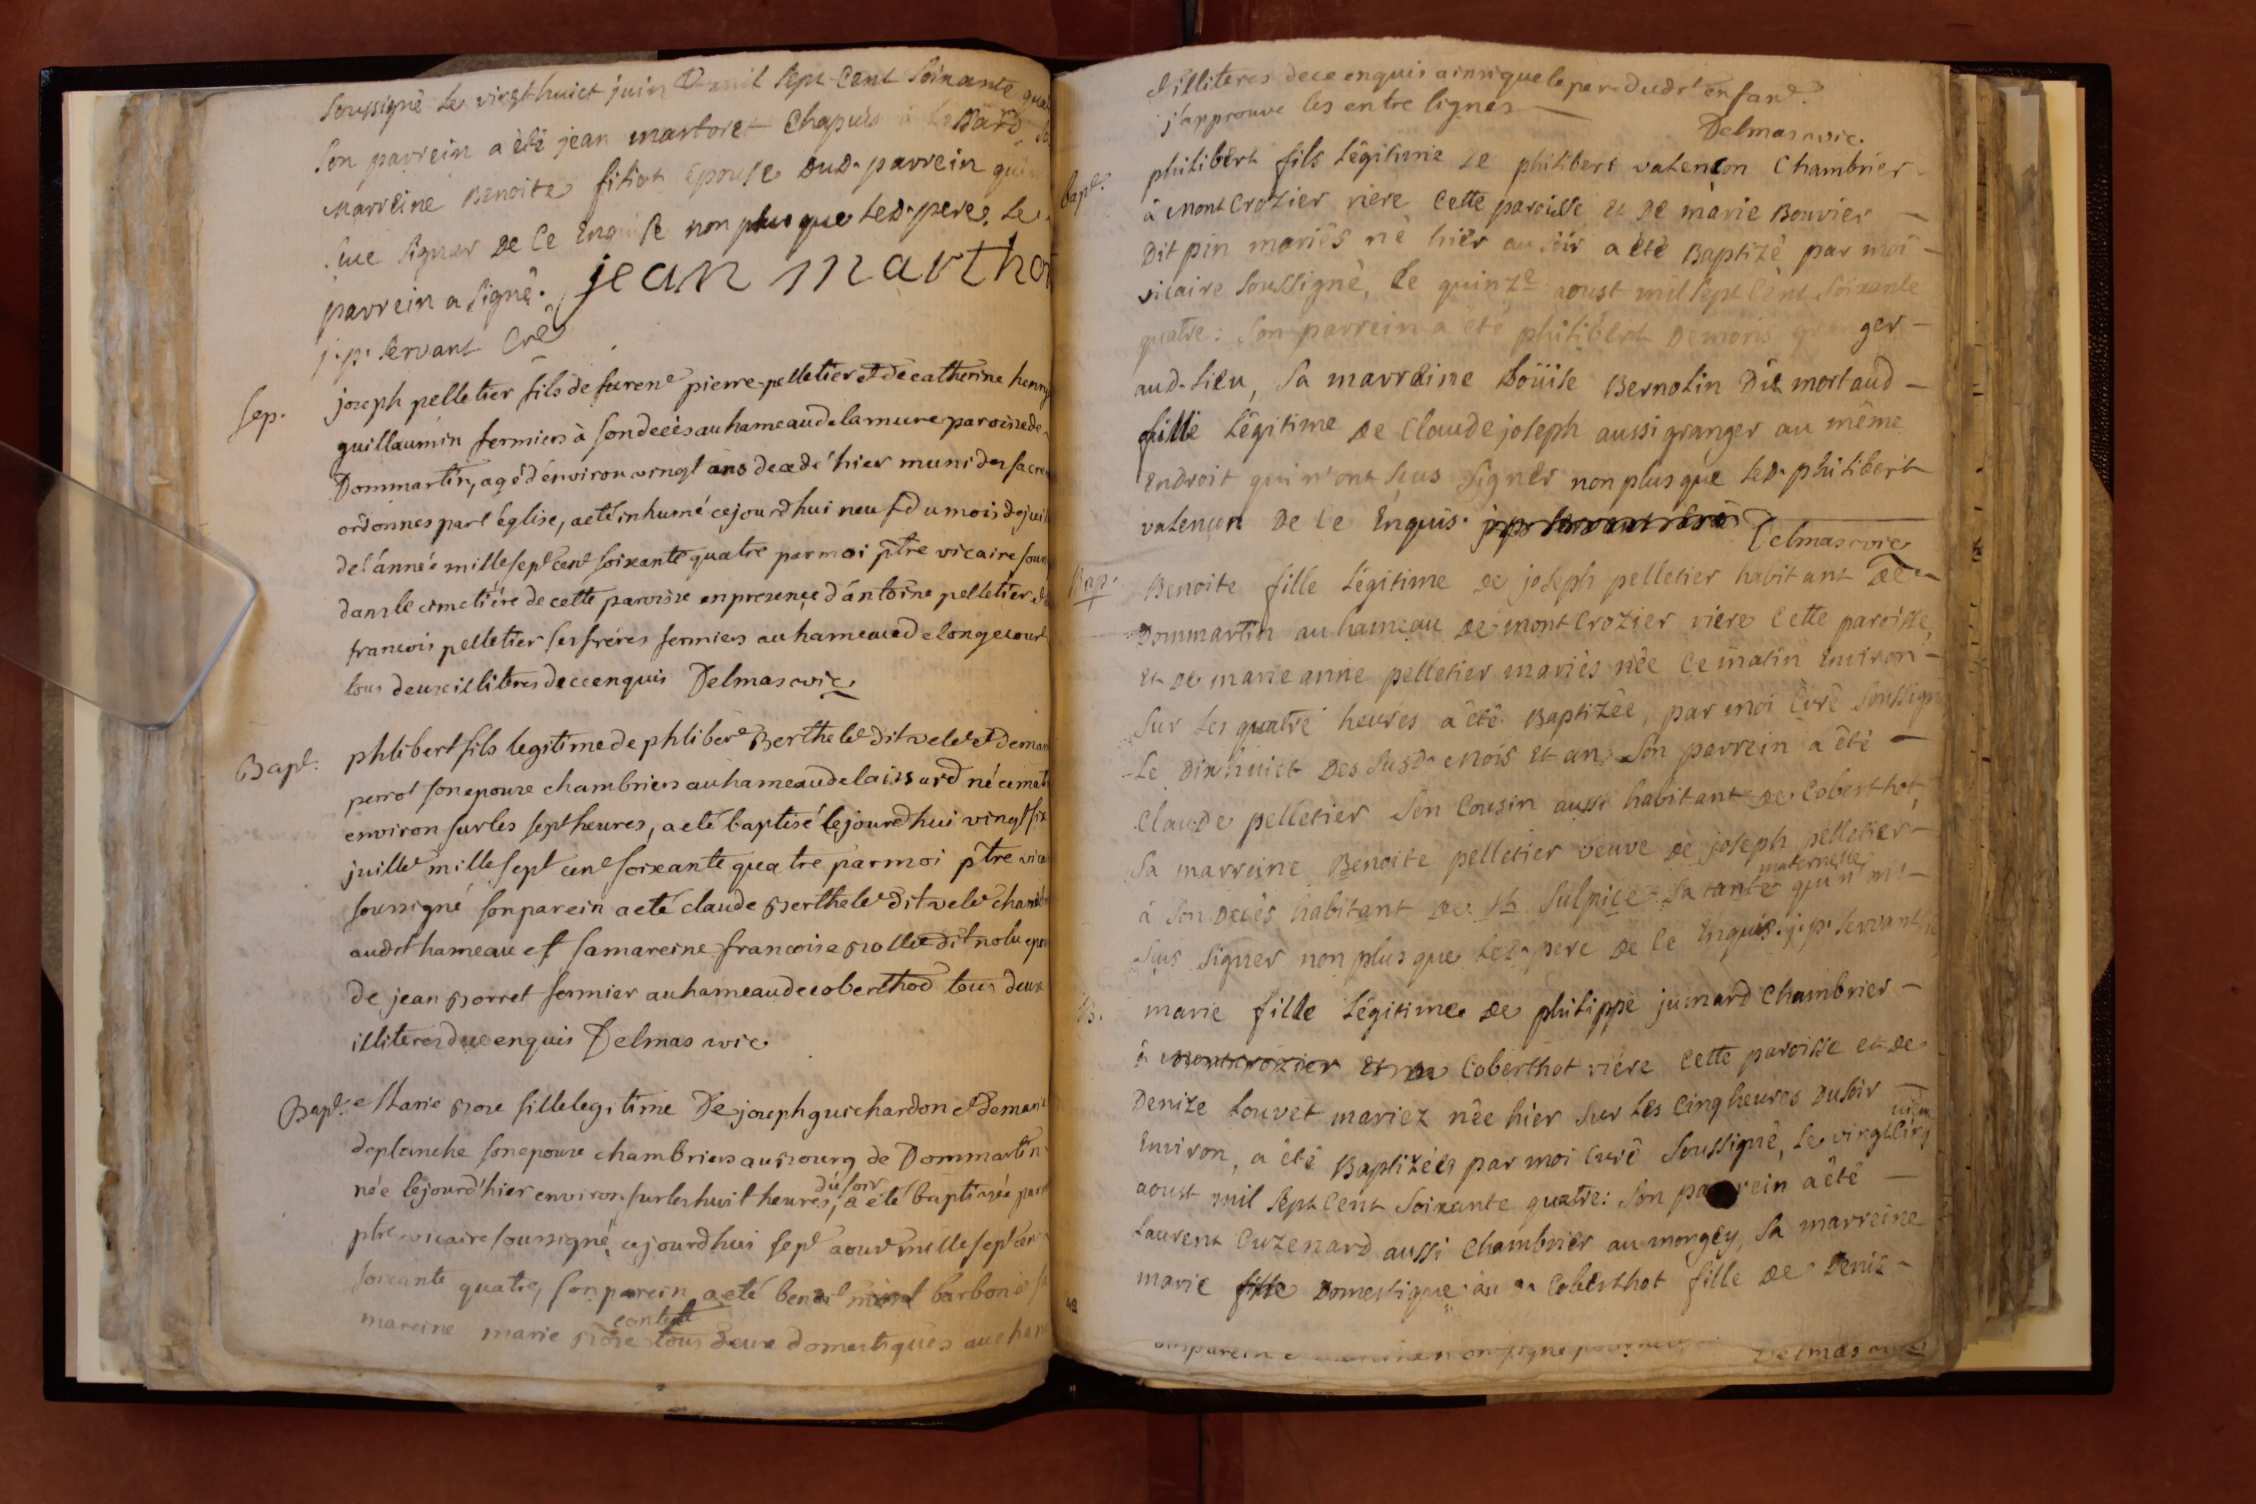 soussigné le vingt huict juin mil sept cent soixante
son parrein a été jean martoret Chapuis
marreine Benoite filiot épouse dud. parrein
sue signer de ce enquise non plus que led. pere. Le
parrein a signé. jean marthor
j. p. servant Cré
Sep.
joseph pelletier fils de feu pierre pelletier et de catherine henry
guillaumin fermiers à son decès au hameau de la mure paroisse de
Dommartin, agé d'environ vingt ans decedé hier muni des sacre
ordonnes par l'église, a eté inhumé cejourdhui neuf du mois de juil
de l'année mille sept cent soixante quatre par moi ptre vicaire sous
dans le cimetiére de cette paroisse en presence d'antoine pelletier et
francois pelletier ses fréres fermiers au hameau de longecourt
tous deux illiteres de ce enquis Delmas vic
Bapt.
phlibert fils legitime de phlibert Berthelet dit velet et de mari
perrot son epouse chambriers au hameau de laissard né ce mati
environ sur les sept heures, a eté baptisé lejourdhui vingt six
juillet mille sept cent soixante quatre par moi ptre vica
soussigné son parein a eté claude Berthelet dit velet chambr
audit hameau et sa mareine francoise
de jean Borret fermier au hameau de coberthod tous deux
illiteres de ce enquis Delmas vic
Bapt.
Marie Rose fille legitime De joseph guichardon et de marie
deplanche son epouse chambriers au Bourg de Dommartin
née lejourd'hier environ sur les huit heures du soir, a eté baptisée par
ptre vicaire soussigné cejourdhui sept aout mille sept cen
soixante quatre, son parein a eté benoit barboné
mareine marie Rose contet tous deux domestiques au ham
et illiteres de ce enquis ainsi que le pere dudit enfant.
j'approuve les entre lignes
Delmas vic.
Bapt.
philibert fils légitime de philibert valencon Chambrier
à montCrozier riere Cette paroisse et de marie Bouvier
dit pin mariés né hier au soir a été Baptizé par moi
vicaire soussigné, le quinze aoust mil sept cent soixante
quatre: son parrein a été philibert Demoris granger
aud. lieu, sa marreine Loüise Bernolin dit mortaud
fille légitime de Claude joseph aussi granger au même
endroit qui n'ont seus signer non plus que led. philibert
valencon de ce enquis. Delmas vic
Bap.
Benoite fille légitime de joseph pelletier habitant de
Dommartin au hameau de montCrozier riere Cette paroisse,
et de marie anne pelletier mariés née ce matin environ
sur les quatre heures a été Baptizée, par moi Curé soussigné
Le dixhuict des susd. mois et an, son parrein a été
Claude pelletier son Cousin aussi habitant de Coberthot,
sa marreine Benoite pelletier veuve de joseph pelletier
à son decès habitant de St Sulpice sa tante maternelle qui n'ont
sus signer non plus que led. pere de ce enquis. j. p. servant
B.
marie fille légitime de philippe jumard Chambrier
à montcrozier et de Coberthot riére Cette paroisse et de
Denize Louvet mariez née hier sur les Cinq heures du soir
environ, a été Baptizée par moi Curé soussigné, Le vingt cinq
aoust mil sept Cent soixante quatre: son parrein a été
Laurent Cuzenard aussi Chambrier au mongey, sa marreine
marie fille domestique au d. Coberthot fille de Deniz
Delmas vic